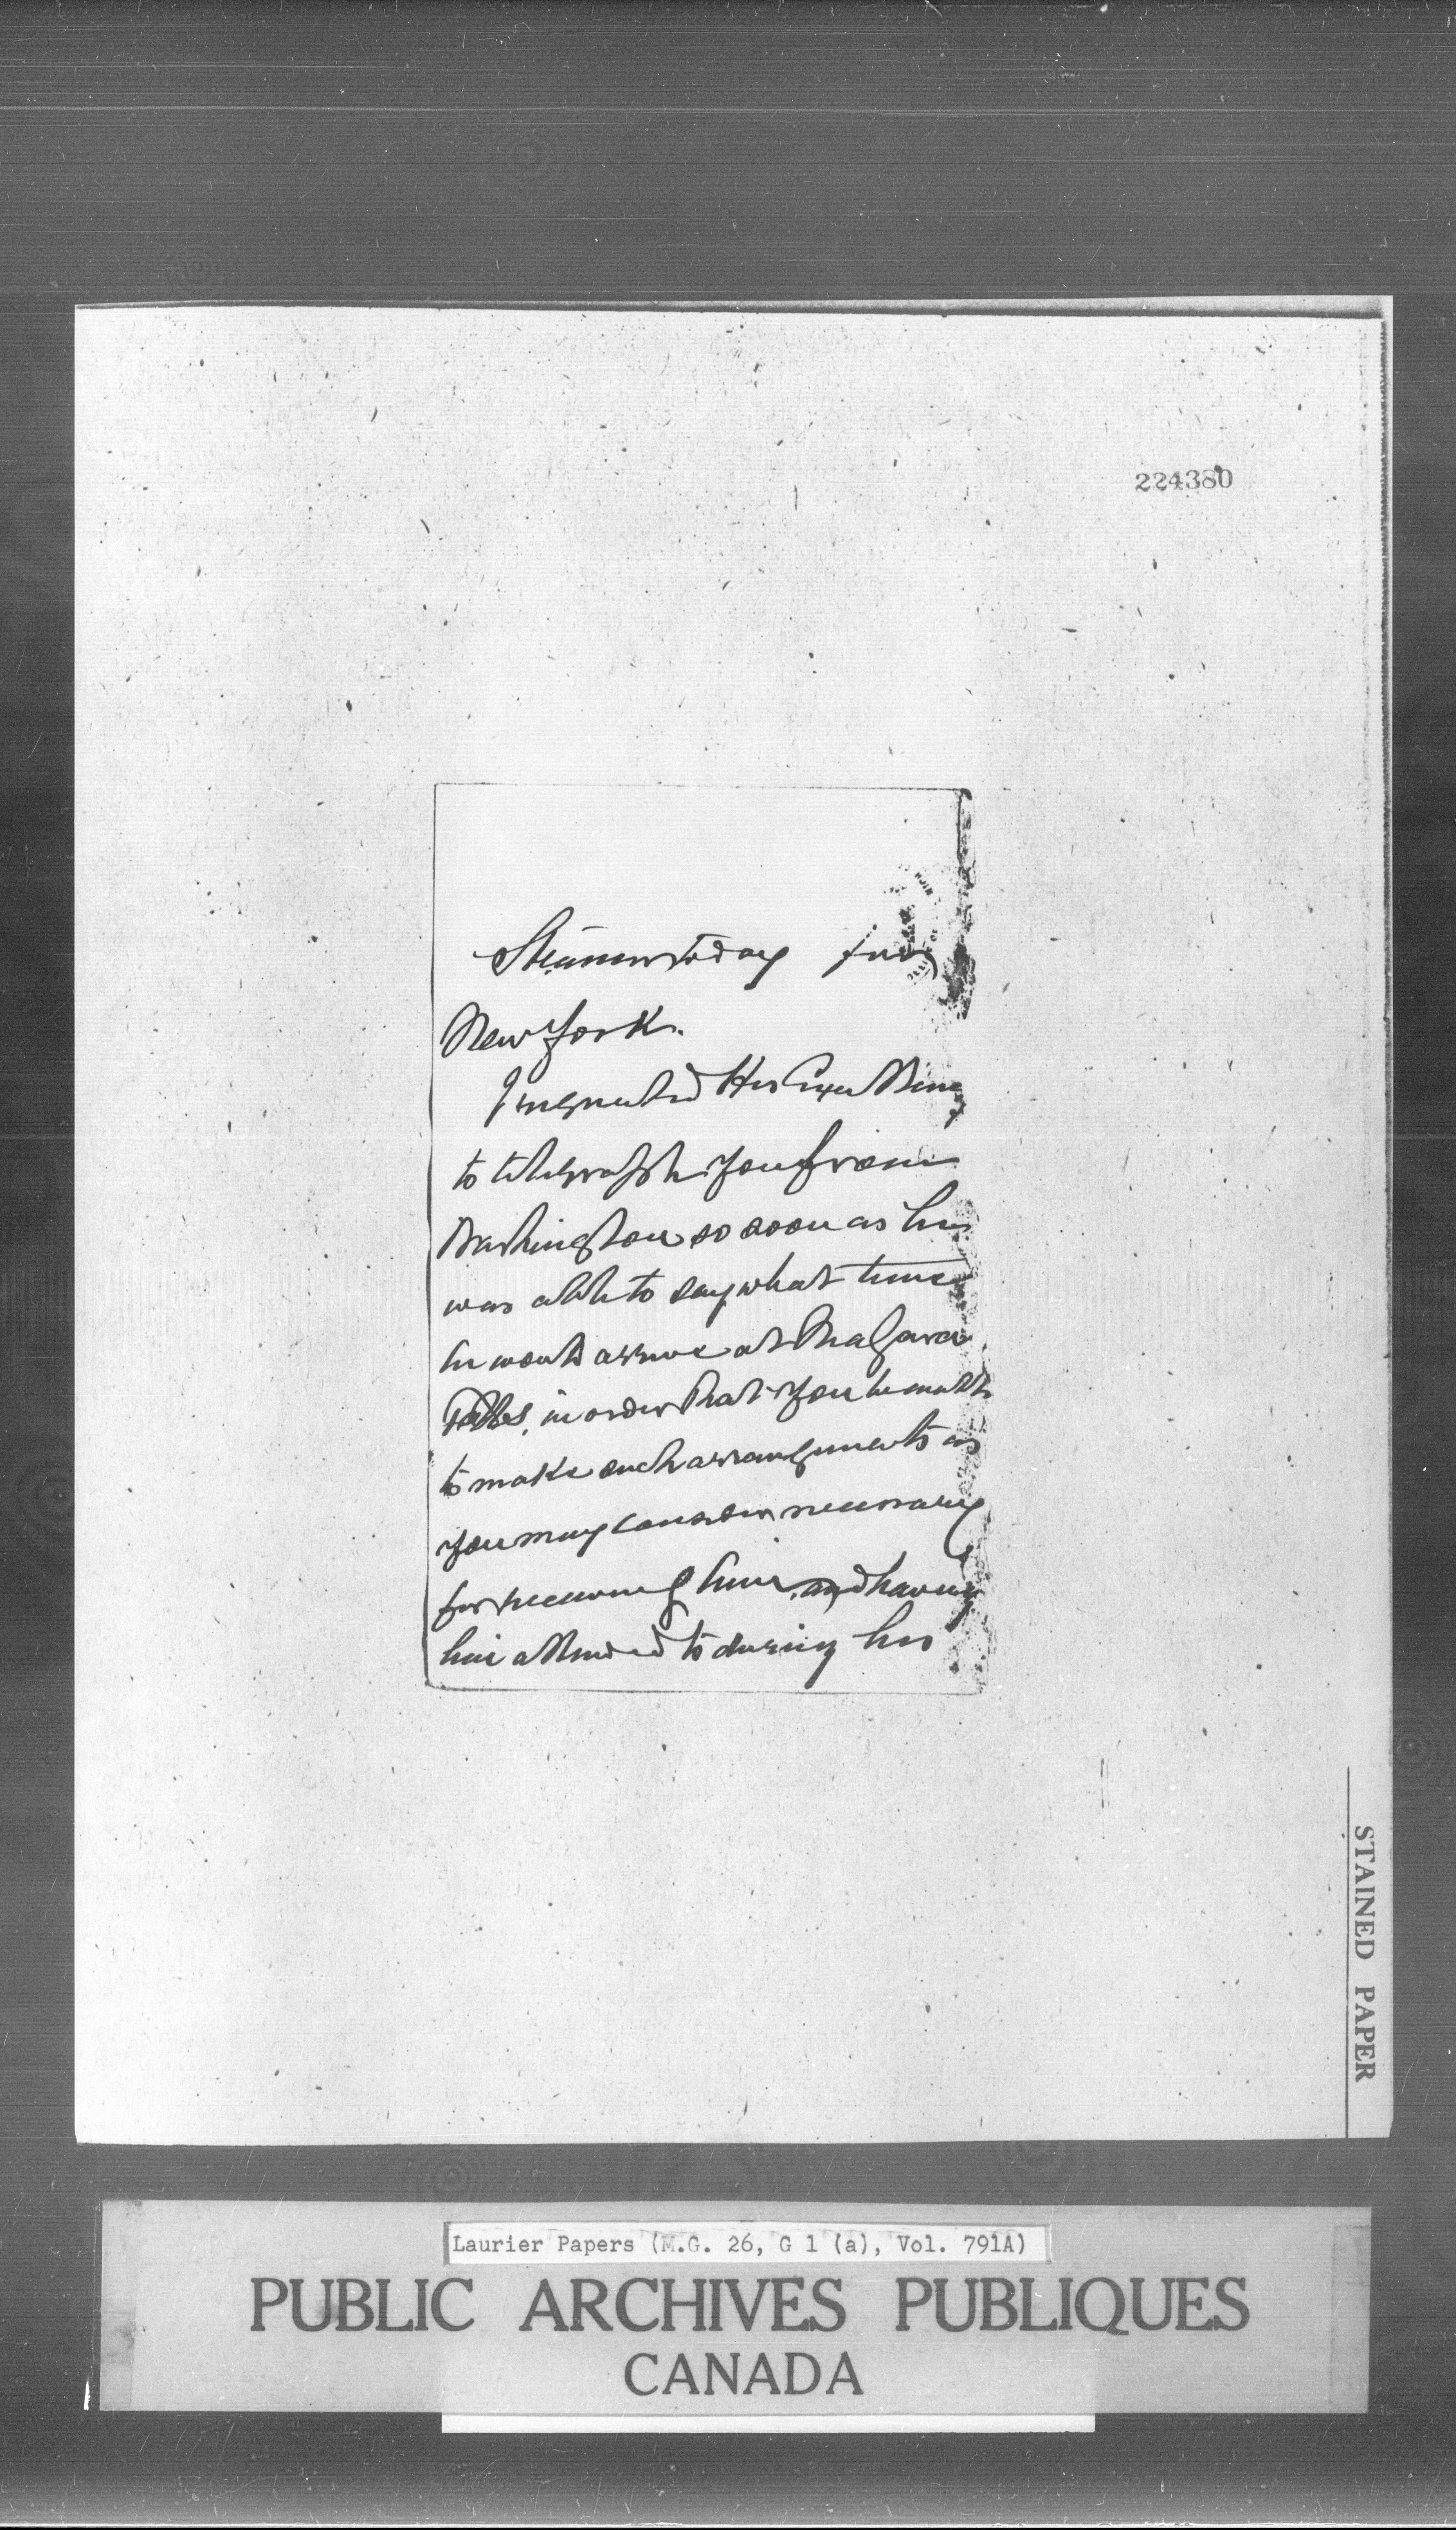 224380
Steamer today for
New York.
I requested His Excellency
to telegraph you from
Washington so soon as he
was able to say what time
he would arrive at Niagara
Falls, in order that you be enabled
to make such arrangements as
you may consider necessary
for receiving him, and having
him attended to during his
STAINED PAPER
Laurier Papers (M.G. 26, G 1 (a), Vol. 791A)
PUBLIC ARCHIVES PUBLIQUES
CANADA